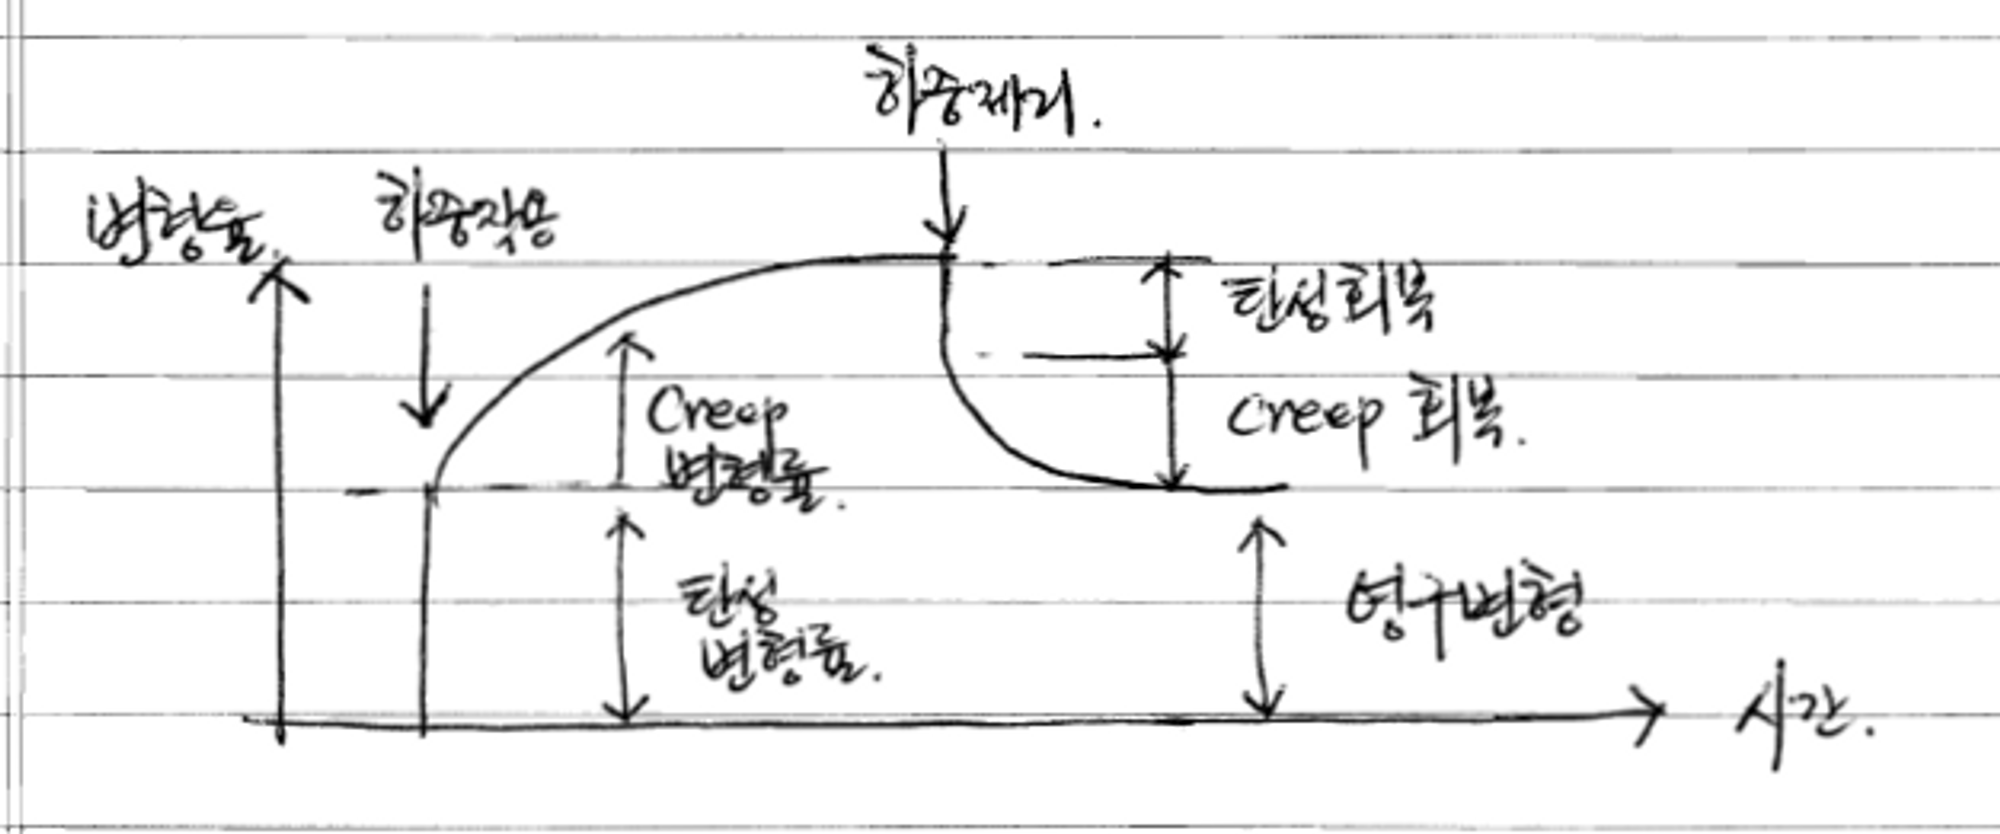 하중제거.
변형률.
하중작용
탄성회복
Creep
변형률.
Creep 회복.
탄성
변형률.
영구변형
시간.